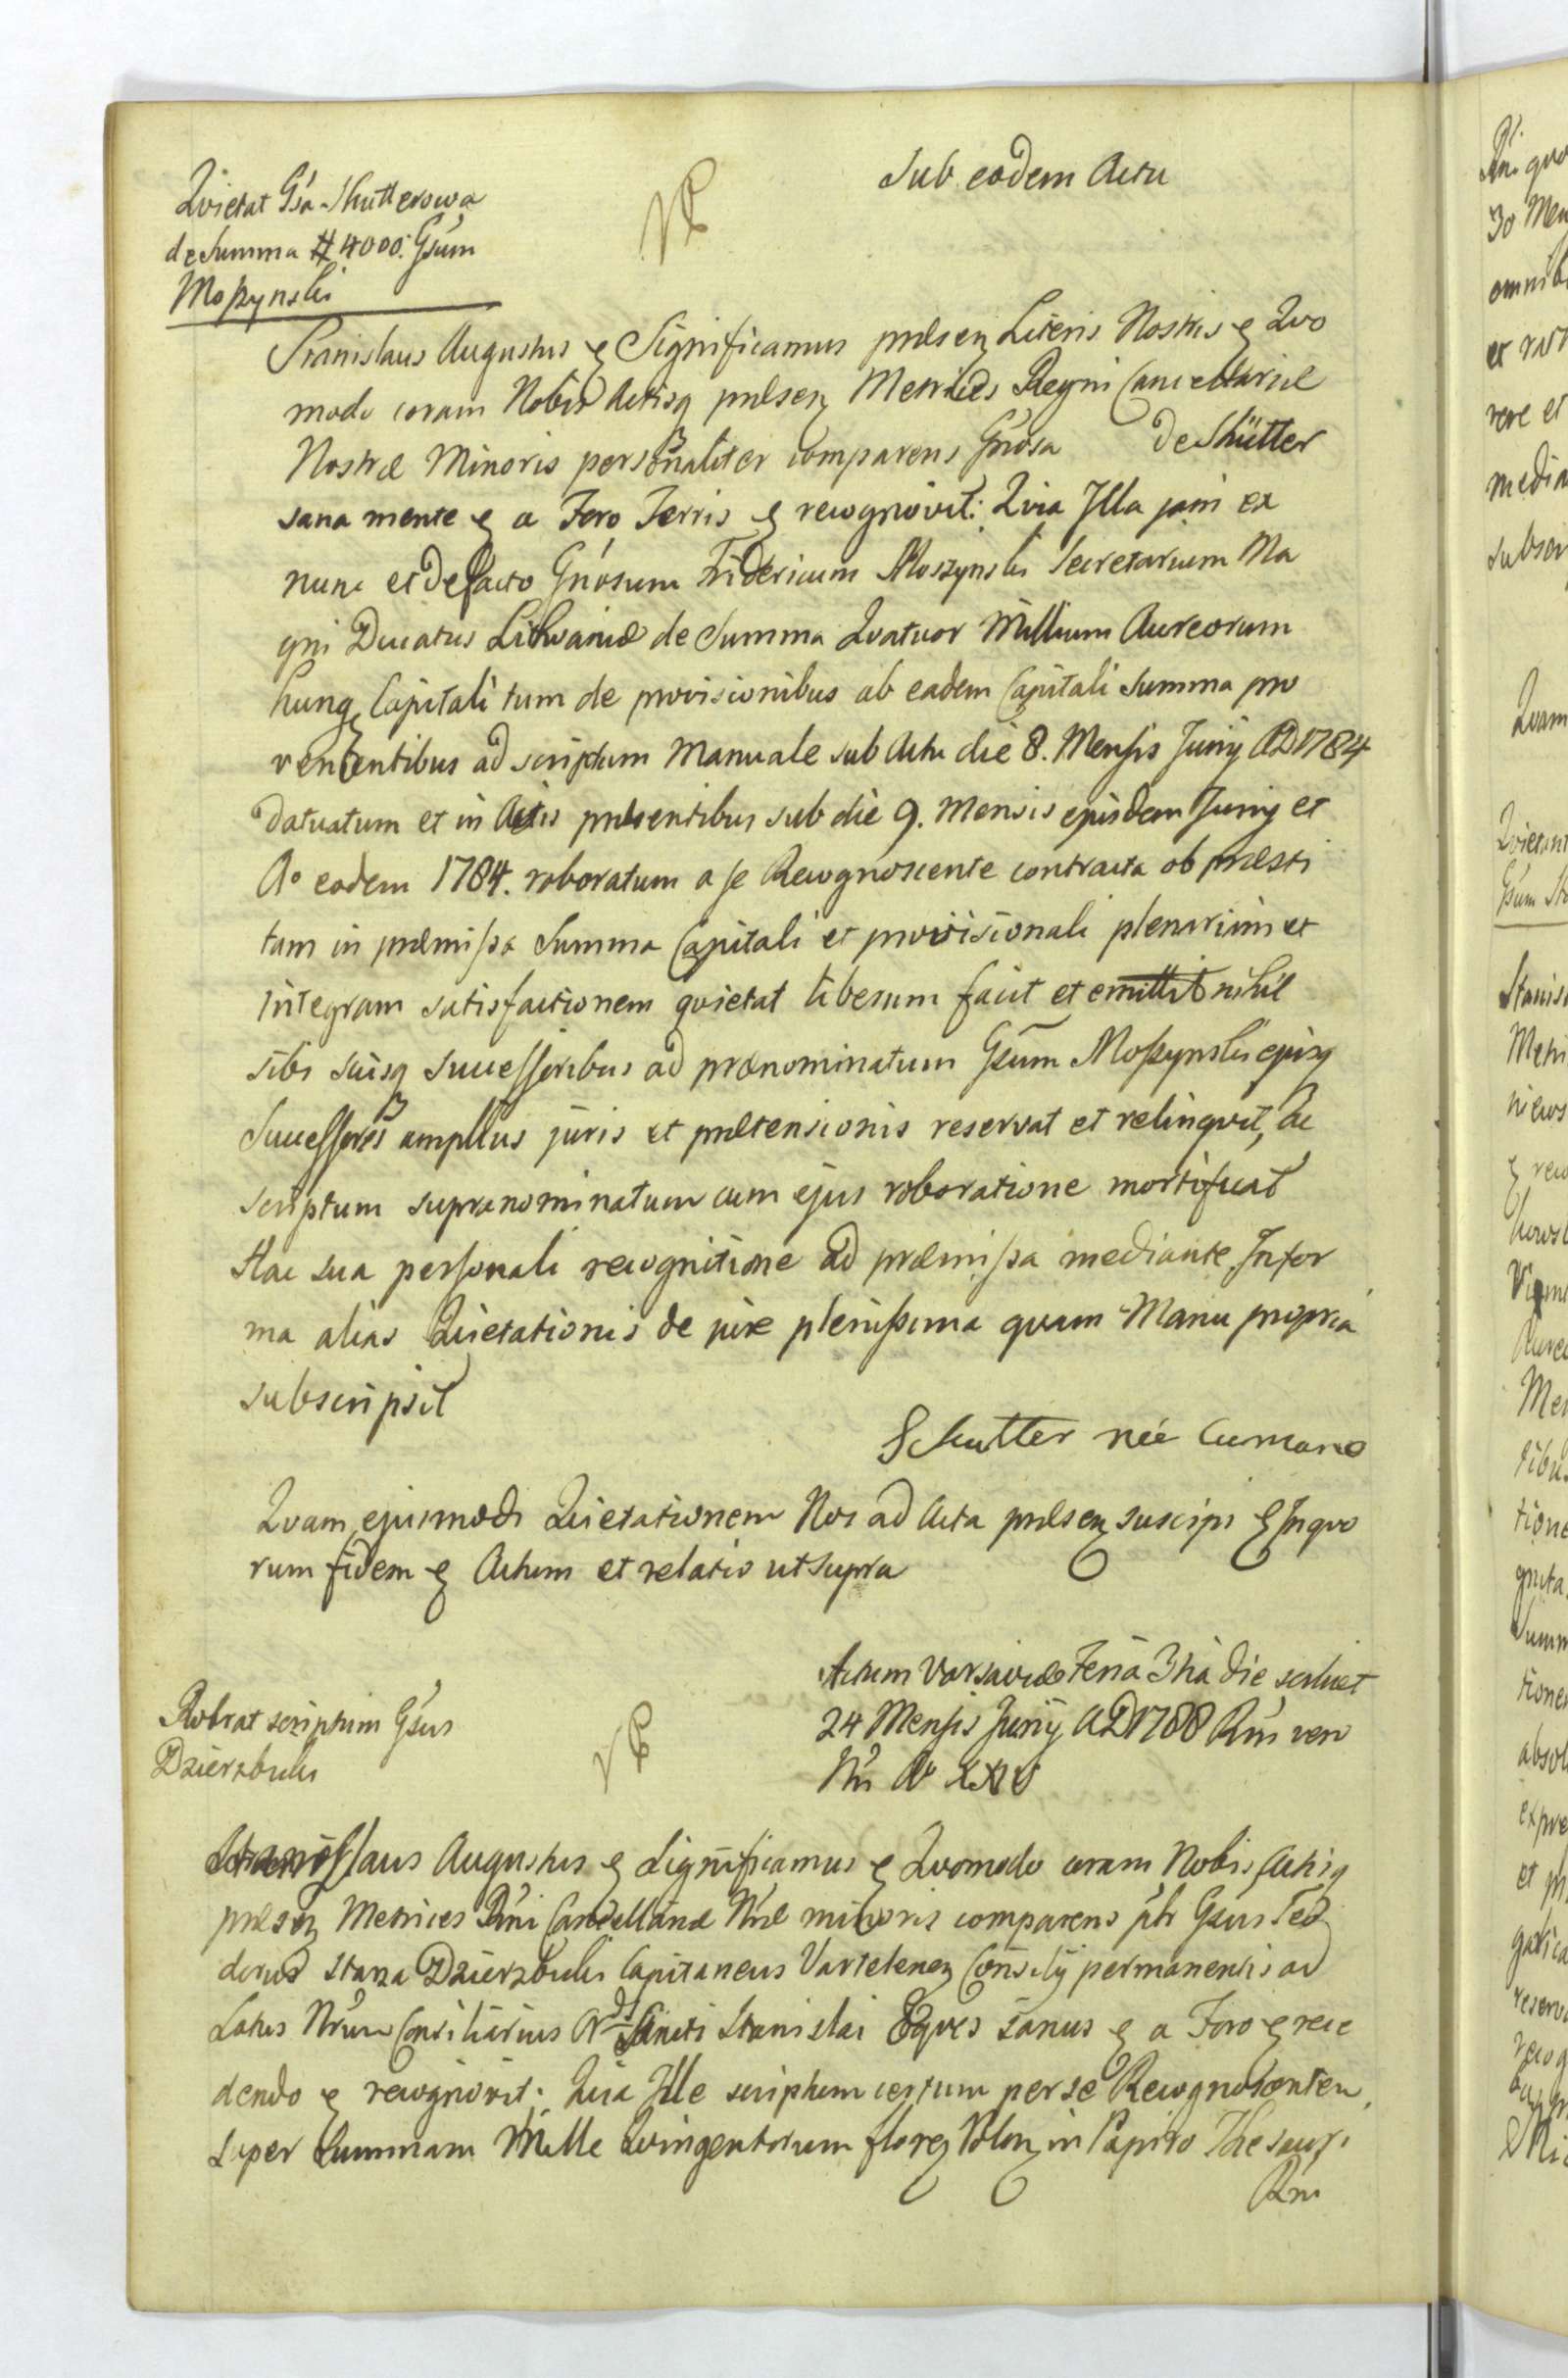 Sub eodem Actu
Qvietat Gsa Shutterowa
de Summa # 4000. Gsum
Moszynski
Stanislaus Augustus & Significamus præsen Literis Nostris & Qvo
modo coram Nobis Actisq præsen Metrices Regni Cancellariæ
Nostræ Minoris personaliter comparens Gnosa de Shütter
sana mente & a Foro Terris & recognovit: Qvia Illa jam ex
nunc et de facto Gnosum Fridericum Moszynski Secretarium Ma
gni Ducatus Lithvaniæ de Summa Qvatuor Millium Aureorum
hung Capitali tum de provisionibus ab eadem Capitali Summa pro
venientibus ad scriptum Manuale sub Actu die 8. Mensis Junij AD 1784
datuatum et in Actis præsentibus sub die 9. Mensis ejusdem Junij et
Aº eodem 1784. roboratum a se Recognoscente contracta ob præsti
tam in præmissa Summa Capitali et provisionali plenariam et
integram satisfactionem qvietat liberum facit et emittit nihil
sibi suisq successoribus ad prænominatum Gsum Moszynski ejusq
Successores amplius juris et prætensionis reservat et relinqvit, Ac
scriptum supranominatum cum ejus roboratione mortificat
Hac sua personali recognitione ad præmissa mediante Infor
ma alias Qvietationis de jure plenissima quam Manu propria
subscripsit
Schutter née Cumano
Qvam ejusmodi Qvietationem Nos ad Acta præsen suscipi & Inqvo
rum fidem & Actum et relatio ut supra
Actum Varsaviæ Feria 3tia die scilicet
24 Mensis Junij AD 1788 Rni ven
Nri Aº XXIV
Robrat scriptum Gsus
Dzierzbicki
Stanislaus Augustus & Significamus & Qvomodo coram Nobis Actisq
præsen Metrices Rni Cancellariæ Nræ minoris comparens plr Gsus Teo
dorus Staza Dzierzbicki Capitaneus Vartelenen Consilij permanentis ad
Latus Nrum Consiliarius Ordis Sancti Stanislai Eqves sanus & a Foro & rece
dendo & recognovit: Qvia Ille scriptum certum per se Recognoscentem
super Summam Mille Qvingentorum floren Polon in Papiro Thesauri
Rni